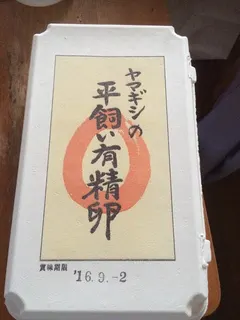 ヤマギシの
平飼い有精卵
賞味期限
'16.9.-2